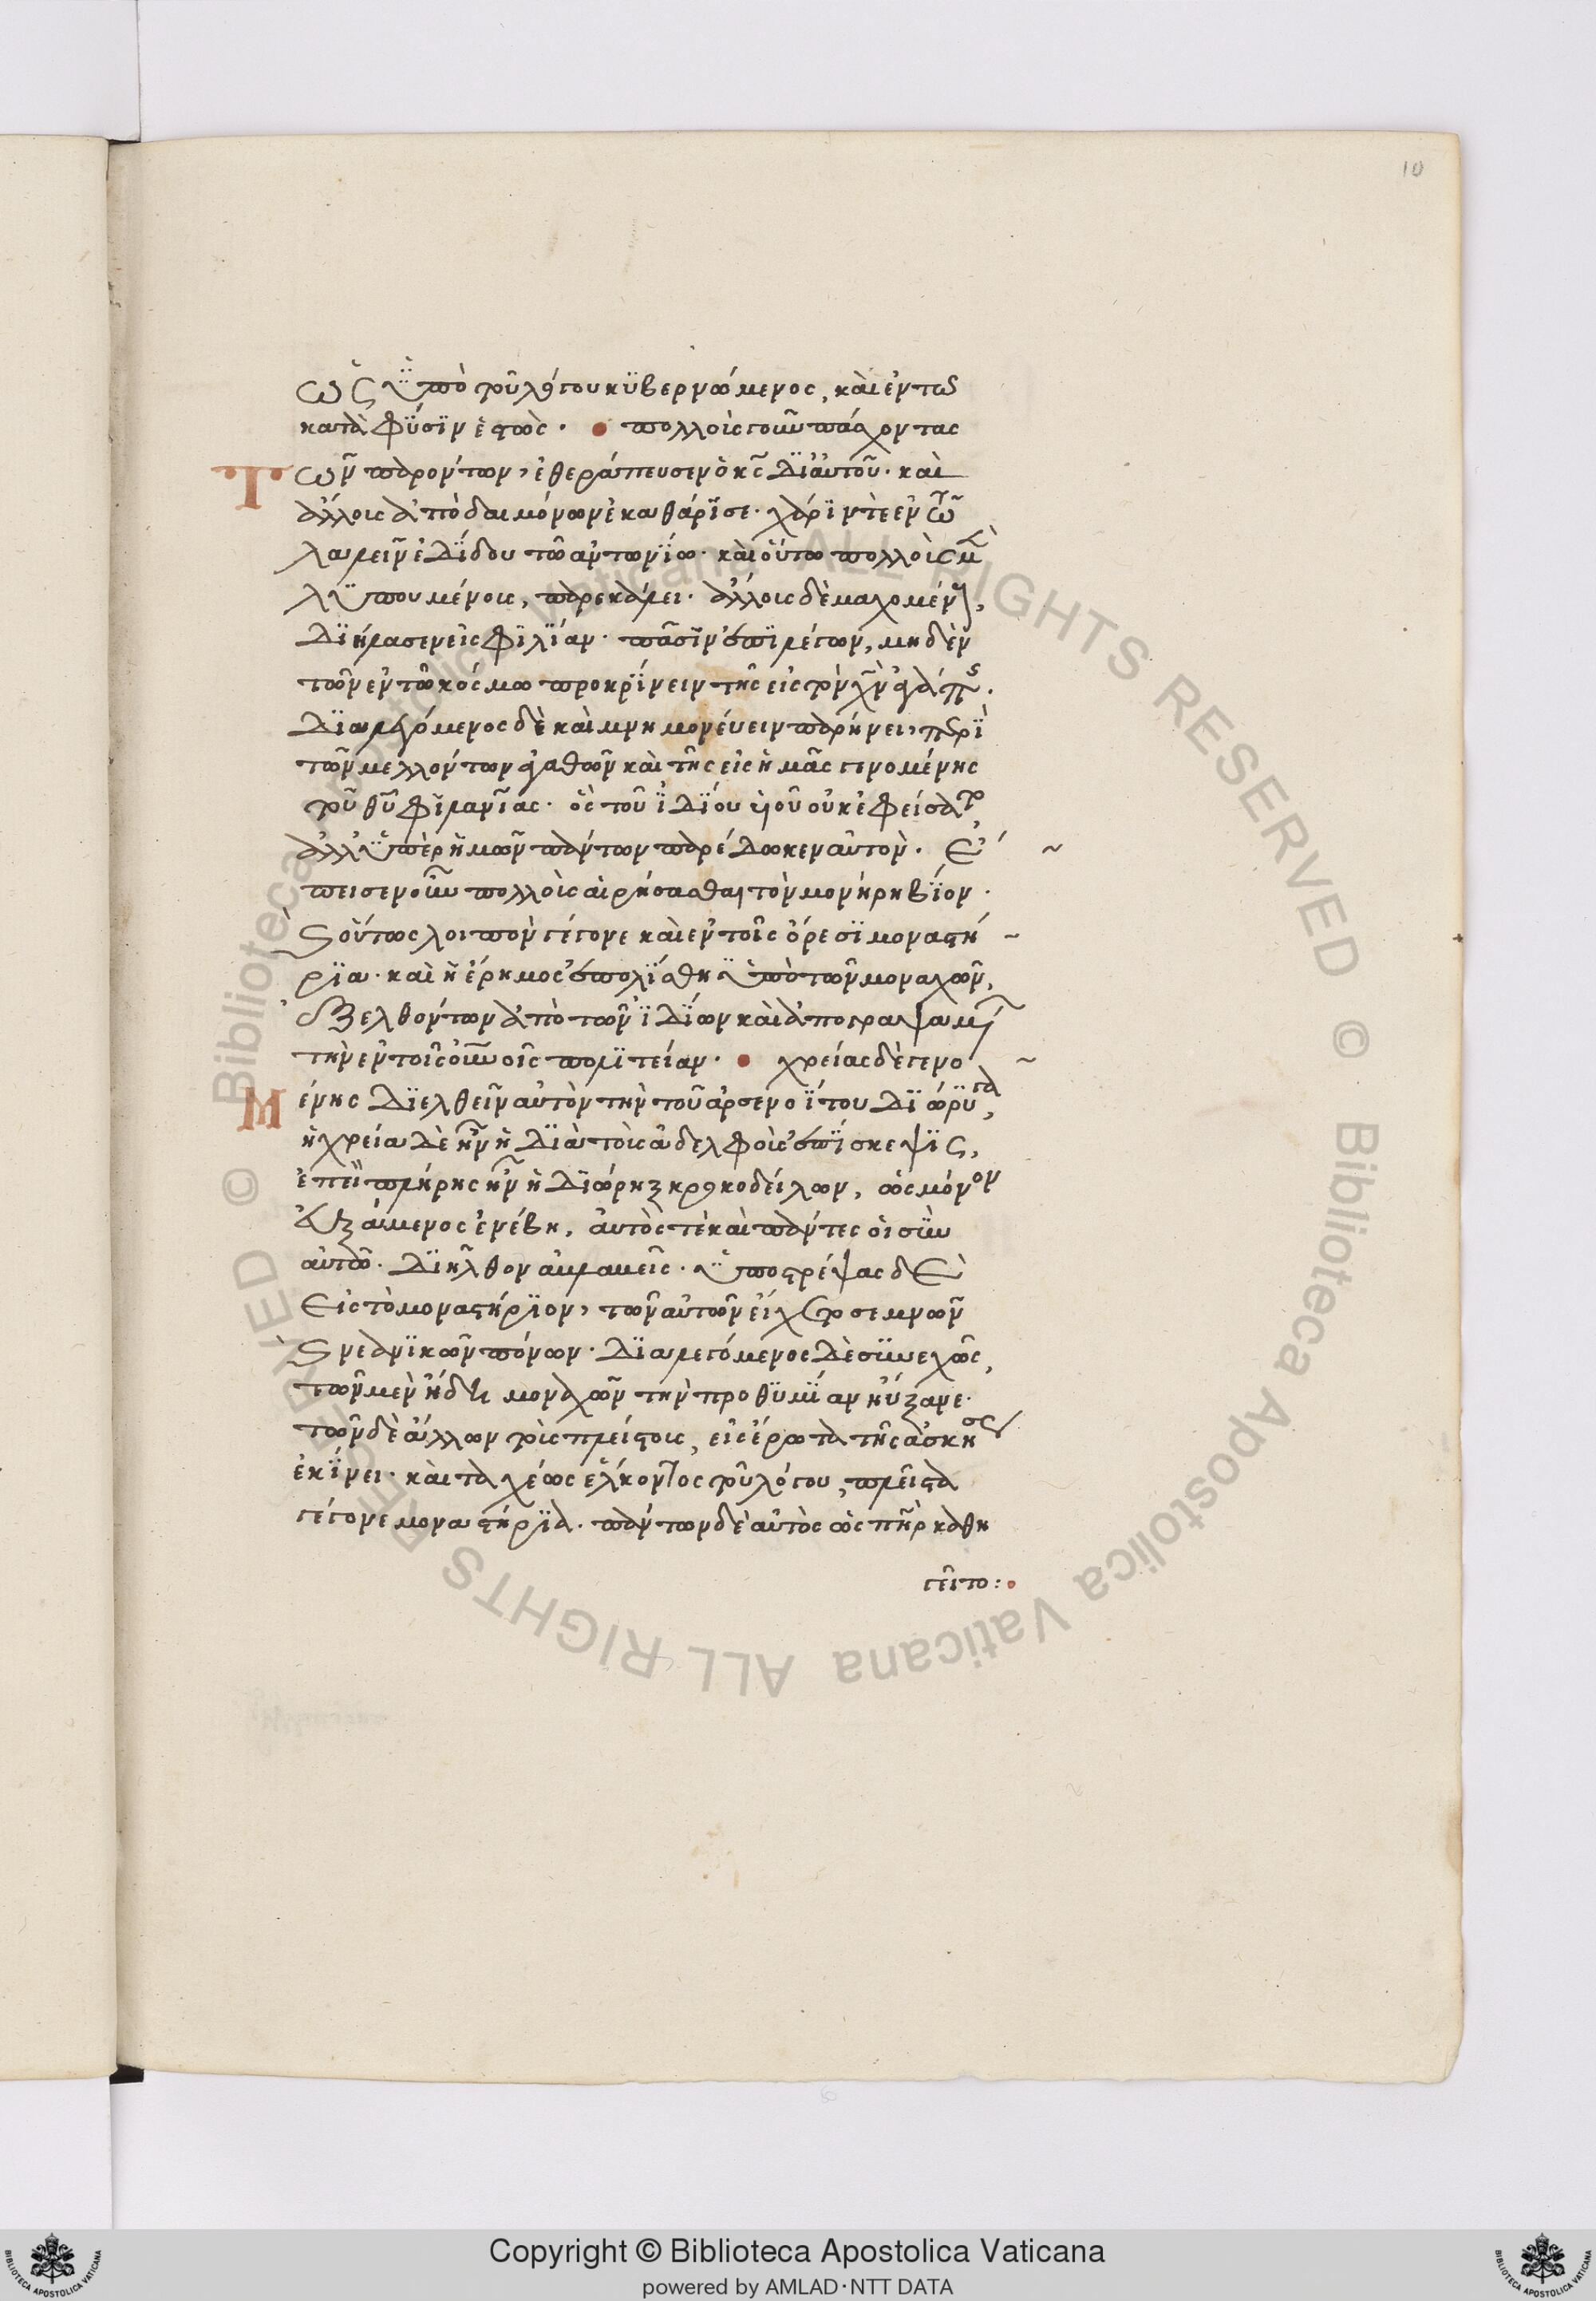 10
ὡς ὑπὸ τοῦ λόγου κϋβερνώμενος, καὶ ἐν τῶ
κατὰ φύσϊν ἑστώς· πολλοὺς γοῦν πάσχοντας
Τῶν παρόντων, ἐθεράπευσεν ὁ κς̅ δϊ' αὐτοῦ· καὶ
ἄλλους ἀπὸ δαιμόνων ἐκαθάρϊσε· χάρϊν τὲ ἐν τῶ
λαλεῖν ἐδΐδου τῶ ἀντωνΐω· καὶ οὕτω πολλοὺς μὲν
λϋπουμένους, παρεκάλει· ἄλλους δὲ μαχομένους,
δϊήλασεν εἰς φϊλΐαν· πᾶσϊν ἐπϊλέγων, μηδὲν
τῶν ἐν τῶ κόσμω προκρΐνειν τῆς εἰς τὸν χν̅ ἀγάπης.
Δϊαλεγόμενος δὲ καὶ μνημονεύειν παρήνει, περϊ
τῶν μελλόντων ἀγαθῶν καὶ τῆς εἰς ἡμᾶς γενομένης
τοῦ θυ̅ φϊλανΐας· ὃς τοῦ ϊδΐου υἱοῦ οὐκ ἐφείσατο,
ἀλλ' ὑπὲρ ἡμῶν πάντων παρέδωκεν αὐτόν. Ἔ
πεισεν οὖν πολλοὺς αἱρήσασθαι τὸν μονήρη βΐον·
καὶ οὕτως λοιπὸν γέγονε καὶ ἐν τοῖς ὄρεσϊ μοναστή
ρϊα· καὶ ἡ ἔρημος ἐπολΐσθη ὑπὸ τῶν μοναχῶν,
ἐξελθόντων ἀπὸ τῶν ϊδΐων καὶ ἀπογραψαμένων
τὴν ἐν τοῖς οὐνοῖς πολϊτείαν· χρείας δὲ γενο
Μένης δϊελθεῖν αὐτὸν τὴν τοῦ ἀρσενοΐτου δϊώρϋγα,
ἡ χρεία δὲ ἦν ἡ δϊὰ τοὺς ἀδελφοὺς ἐπΐσκεψϊς,
ἐπεὶ πλήρης ἦν ἡ δϊώρηξ κροκοδείλων, ὡς μόνον
εὐξάμενος ἐνέβη, αὐτός τὲ καὶ πάντες οἱ σὺν
αὐτῶ· δϊῆλθον ἀβλαβεῖς· ὑποστρέψας δὲ
εἰς τὸ μοναστήρϊον, τῶν αὐτῶν εἴχετο σεμνῶν
καὶ νεανϊκῶν πόνων· δϊαλεγόμενος δὲ συνεχῶς,
τῶν μὲν ἤδη μοναχῶν τὴν προθϋμΐαν ηὔξανε·
τῶν δὲ ἄλλων τοὺς πλείστους, εἰς ἔρωτα τῆς ἀσκήσεως
ἐκΐνει· καὶ ταχέως ἕλκοντος τοῦ λόγου, πλεῖστα
γέγονε μοναστήρϊα· πάντων δὲ αὐτὸς ὡς πη̅ρ καθη
γεῖτο:
Copyright © Biblioteca Apostolica Vaticana
powered by AMLAD·NTT DATA